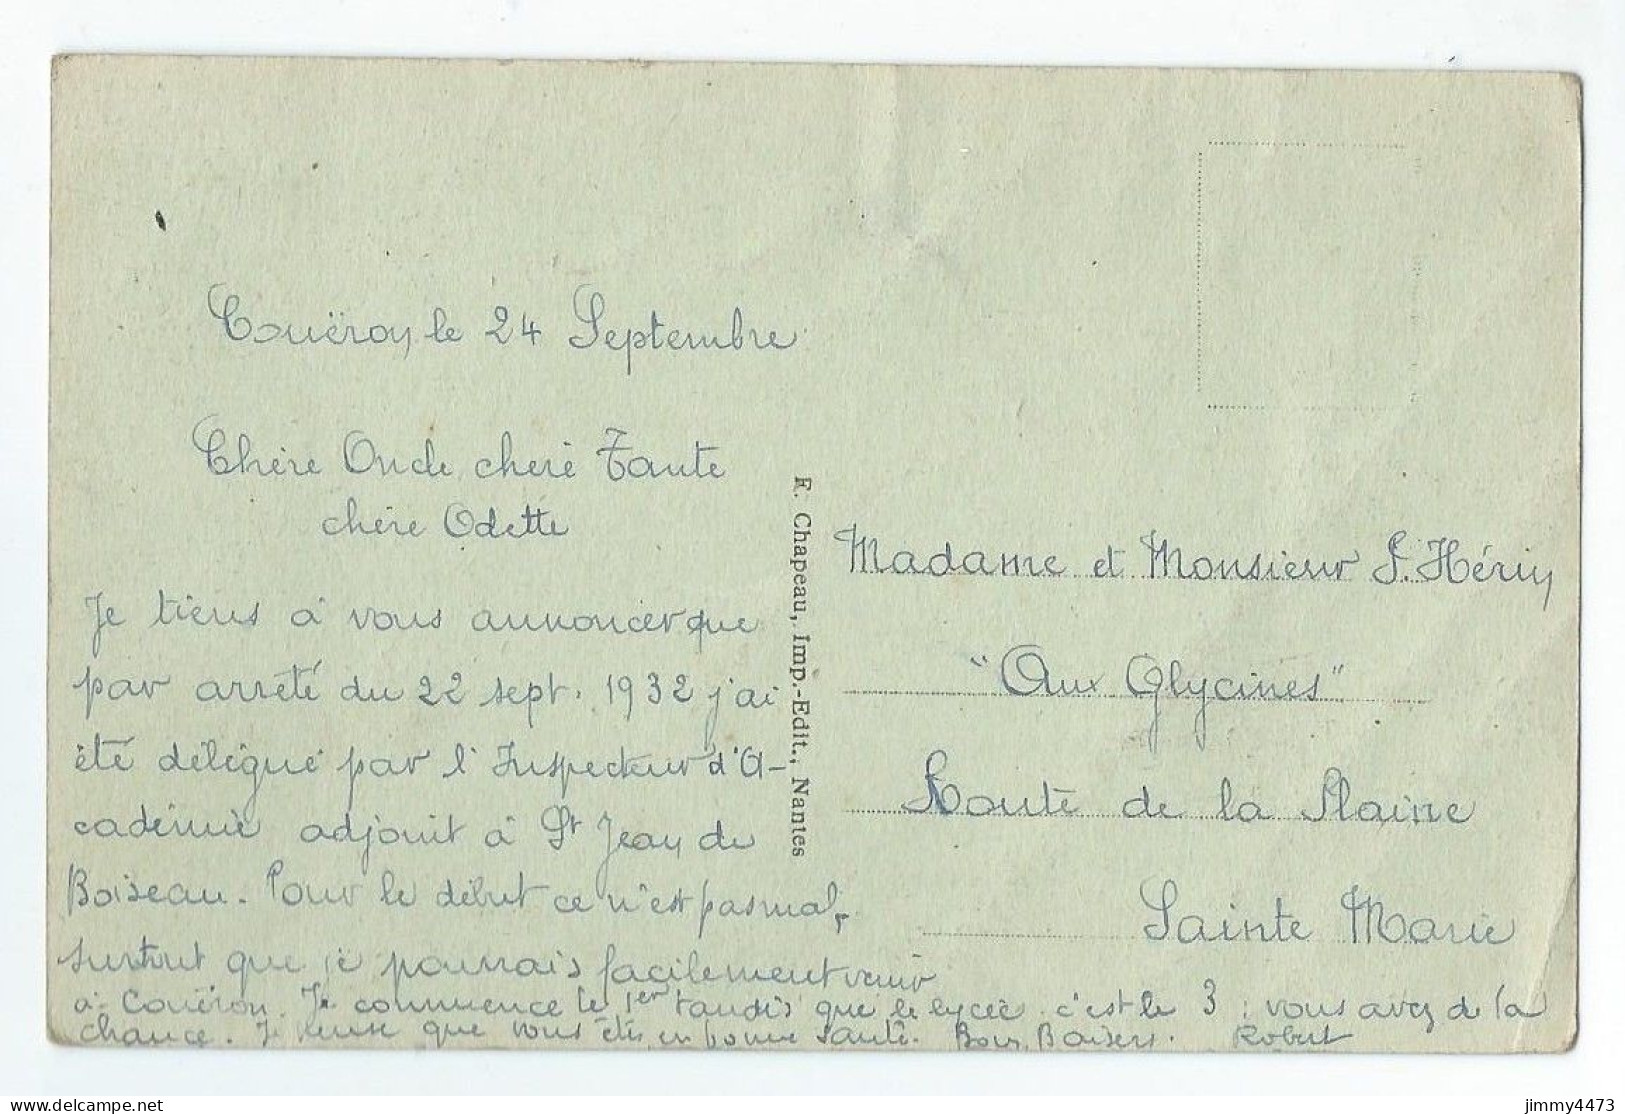 Couëron le 24 Septembre
Chère Oncle, chère Tante
chère Odette
Je tiens à vous annoncer que
par arrêté du 22 sept. 1932 j'ai
été délégué par l'Inspecteur d'A-
cadémie adjoint à St Jean de
Boiseau. Pour le début ce n'est pas mal,
surtout que je pourrais facilement venir
à Couëron. Je commence le 1er tandis que le lycée c'est le 3 ; vous avez de la
chance. Je pense que vous êtes en bonne santé. Bons Baisers. Robert
F. Chapeau, Imp.-Edit., Nantes
Madame et Monsieur S. Hérin
"Aux Glycines"
Route de la Plaine
Sainte Marie
jimmy4473